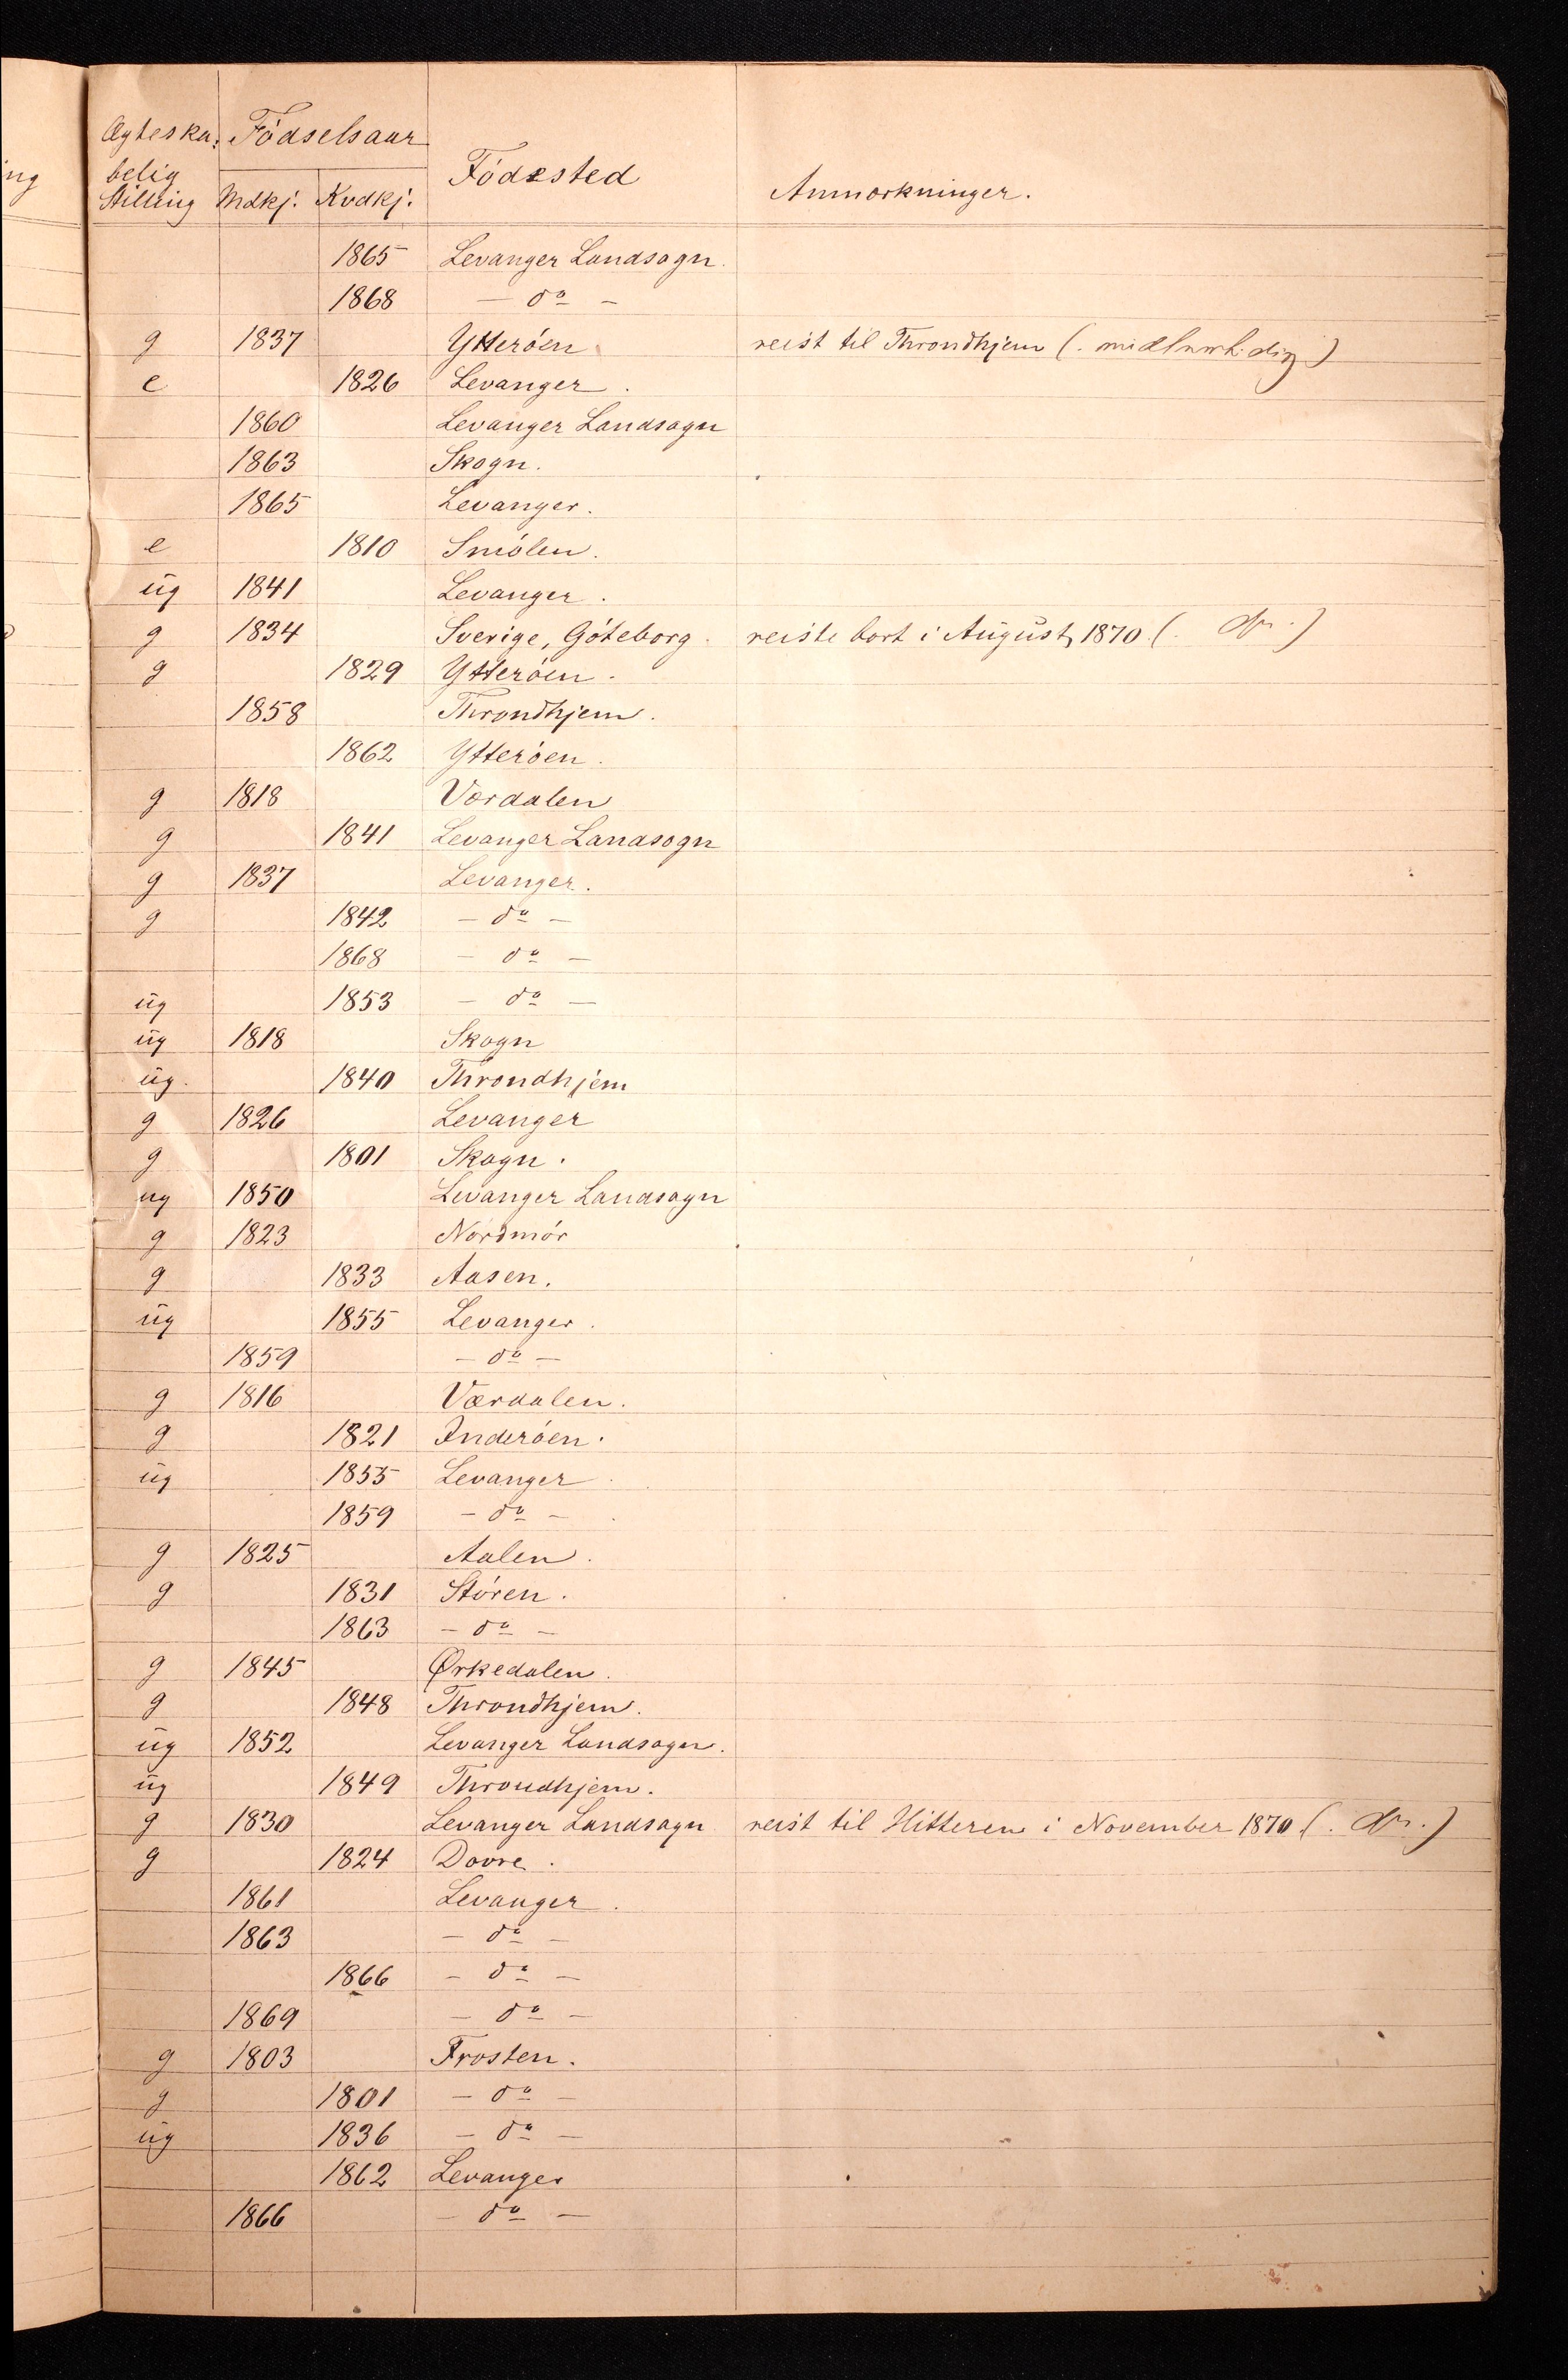 Ægteska: Födselsaar
belig Födested Anmærkninger.
Stilling Mdkj. Kvdkj.
1865 Levanger Landsogn.
1868 — do —
g 1837 Ytteröen reist til Throndhjem (. midlertidig)
e 1826 Levanger.
1860 Levanger Landsogn
1863 Skogn.
1865 Levanger.
e 1810 Smölen.
ug 1841 Levanger.
g 1834 Sverige, Göteborg. reiste bort i August 1870 (. do.)
g 1829 Ytteröen.
1858 Throndhjem.
1862 Ytteröen.
g 1818 Værdalen
g 1841 Levanger Landsogn
g 1837 Levanger.
g 1842 — do —
1868 — do —
ug 1853 — do —
ug 1818 Skogn
ug. 1840 Throndhjem
g 1826 Levanger
g 1801 Skogn.
ug 1850 Levanger Landsogn
g 1823 Nordmör
g 1833 Aasen.
ug 1855 Levanger.
1859 — do —
g 1816 Værdalen.
g 1821 Inderöen.
ug 1855 Levanger.
1859 — do —
g 1825 Aalen.
g 1831 Stören.
1863 — do —
g 1845 Ørkedalen.
g 1848 Throndhjem.
ug 1852 Levanger Landsogn.
ug 1849 Throndhjem.
g 1830 Levanger Landsogn reist til Hitteren i November 1870 (. do.)
g 1824 Dovre.
1861 Levanger.
1863 — do —
1866 — do —
1869 — do —
g 1803 Frosten.
g 1801 — do —
ug 1836 — do —
1862 Levanger
1866 — do —